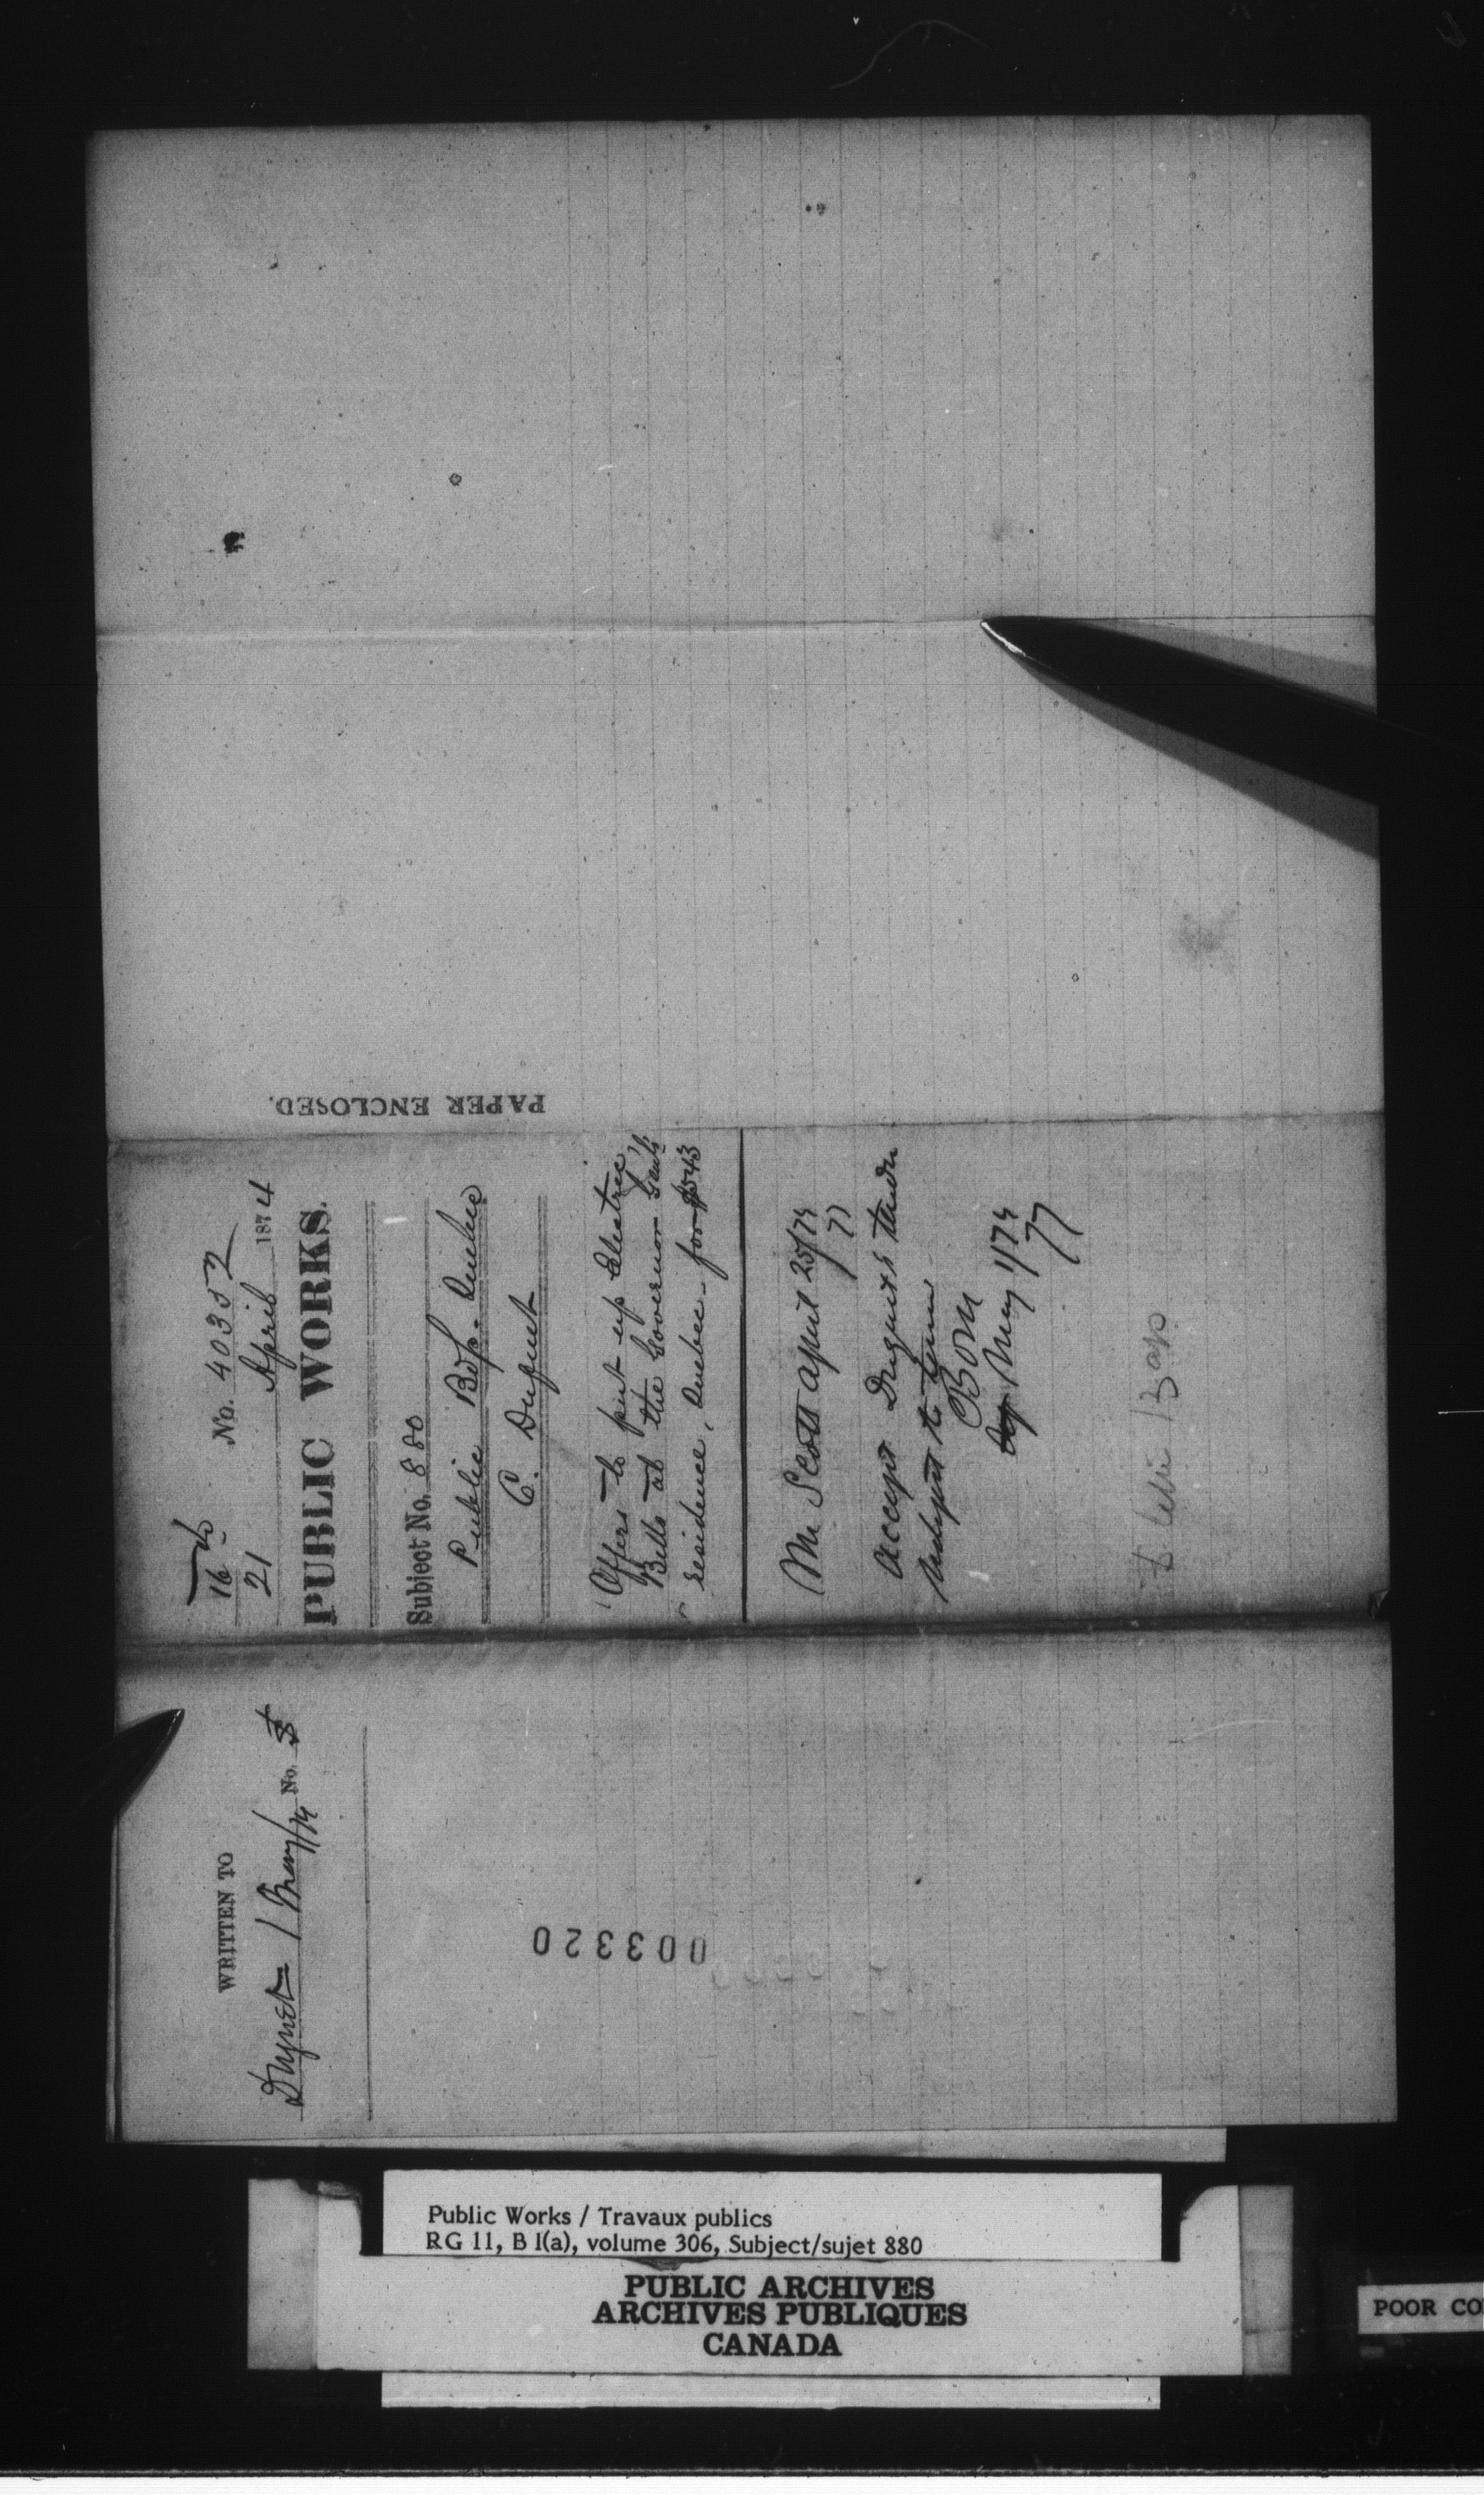 16th
No. 40352
21 April 1874
PUBLIC WORKS.
Subject No. 880
Public Bdgs. Quebec
C. Duquet
Offers to put up Electric
Bells at the Governor Genl's
residence, Quebec - for $543
Mr Scott April 25/74
77
accept Duquet's tender
BOM
May 1/74
77
PAPER ENCLOSED.
WRITTEN TO
Duquet 1 May/74 No.
003320
Public Works / Travaux publics
RG 11, B 1(a), volume 306, Subject/sujet 880
PUBLIC ARCHIVES
ARCHIVES PUBLIQUES
CANADA
POOR CO